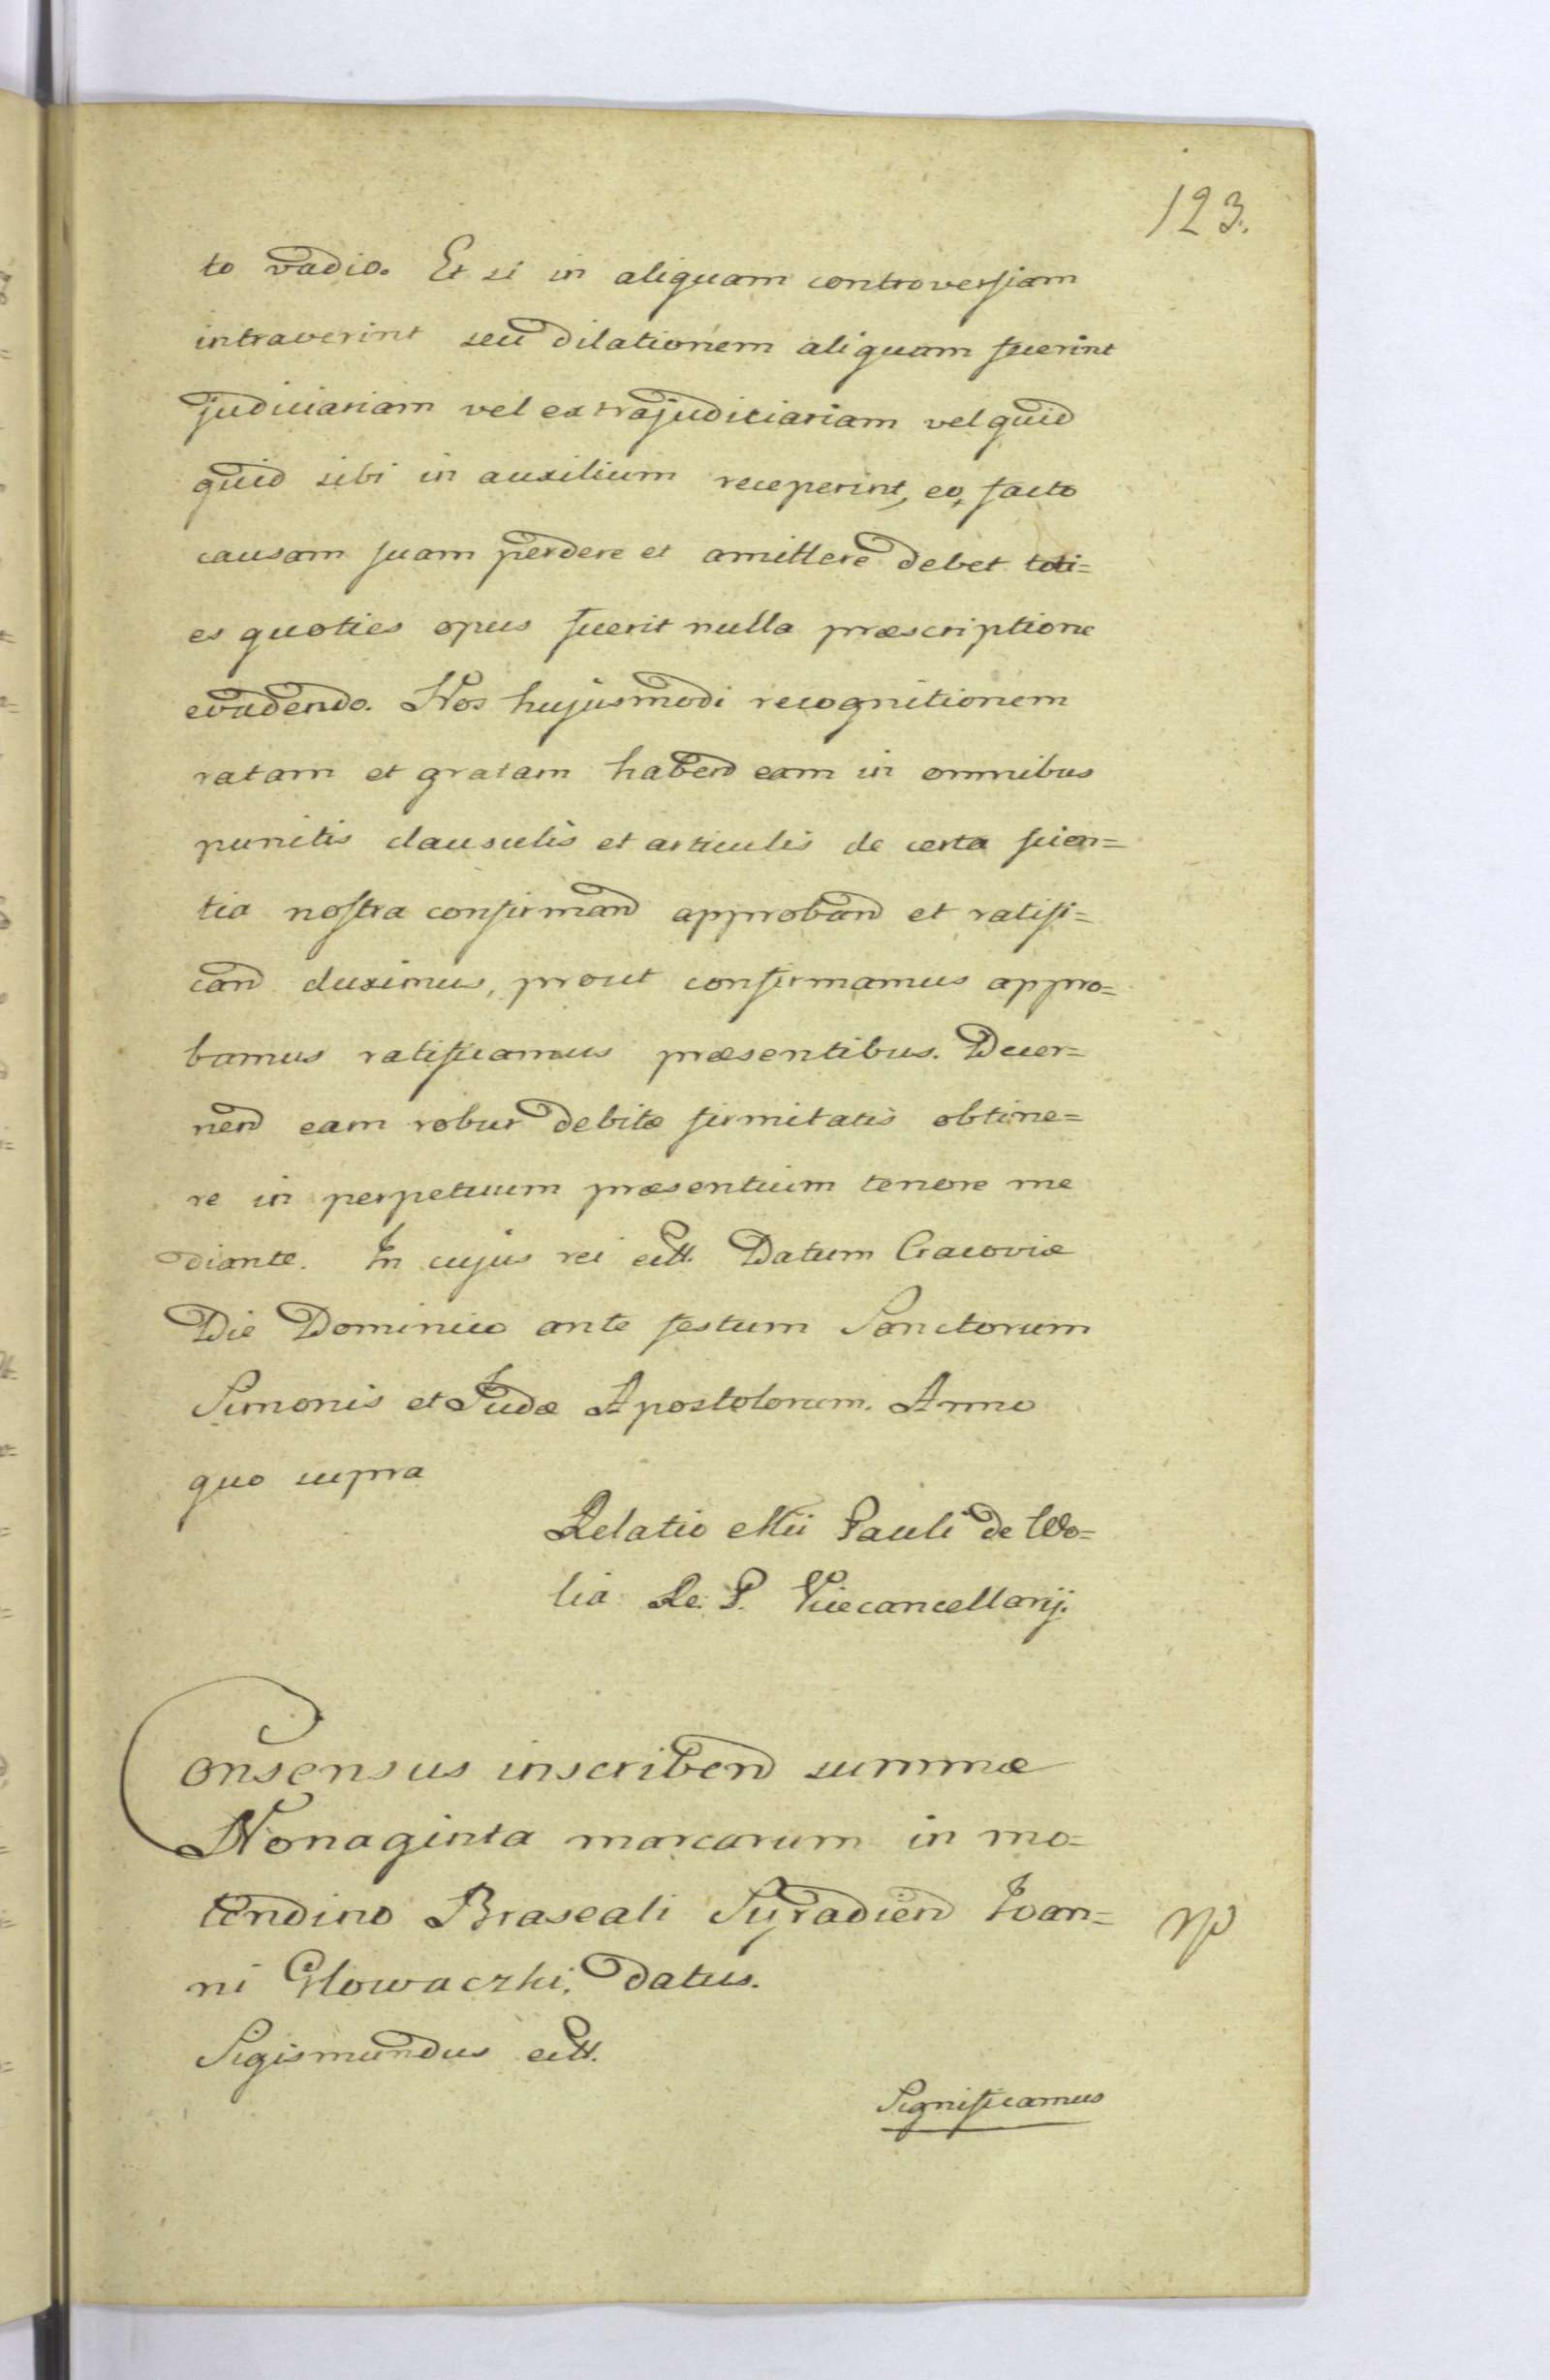 123.
to vadio. Et si in aliquam controversiam
intraverint seu dilationem aliquam fuerint
judiciariam vel extrajudiciariam vel quid
quid sibi in auxilium receperint, eo, facto
causam suam perdere et amittere debet toti=
es quoties opus fuerit nulla præscriptione
evadendo. Nos hujusmodi recognitionem
ratam et gratam habend eam in omnibus
punctis clausulis et articulis de certa scien=
tia nostra confirmand approband et ratifi=
cand duximus, prout confirmamus appro=
bamus ratificamus præsentibus. Decer=
nend eam robur debitæ firmitatis obtine=
re in perpetuum præsentium tenore me
diante. In cujus rei ectt. Datum Cracoviæ
Die Dominico ante festum Sanctorum
Simonis et Judæ Apostolorum. Anno
quo supra
Relatio Mii Pauli de Wo=
lia Re. P. Vicecancellarij.
Consensus inscribend summæ
Nonaginta marcarum in mo=
lendino Braseali Syradien Joan=
ni Glowaczki. datus.
Sigismundus ectt.
Significamus